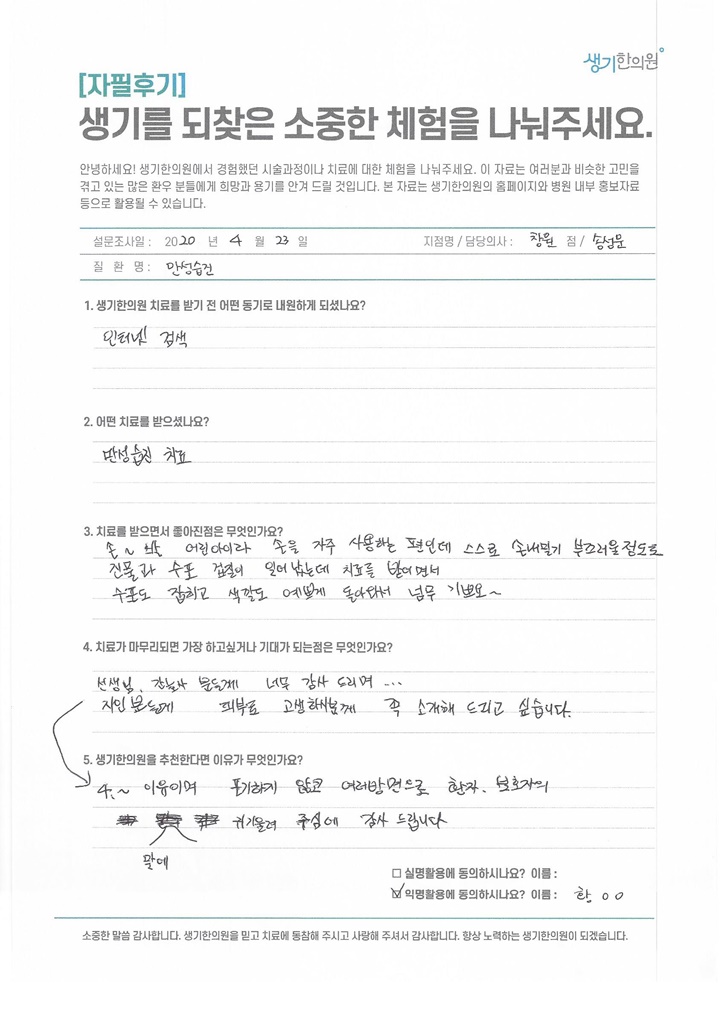 생기한의원
[자필후기]
생기를 되찾은 소중한 체험을 나눠주세요.
안녕하세요! 생기한의원에서 경험했던 시술과정이나 치료에 대한 체험을 나눠주세요. 이 자료는 여러분과 비슷한 고민을
겪고 있는 많은 환우 분들에게 희망과 용기를 안겨 드릴 것입니다. 본 자료는 생기한의원의 홈페이지와 병원 내부 홍보자료
등으로 활용될 수 있습니다.
설문조사일 : 2020 년 4 월 23 일 지점명 / 담당의사 : 창원 점 / 송성문
질 환 명 : 만성습진
1. 생기한의원 치료를 받기 전 어떤 동기로 내원하게 되셨나요?
인터넷! 검색
2. 어떤 치료를 받으셨나요?
만성습진 치료
3. 치료를 받으면서 좋아진점은 무엇인가요?
손~ 어린아이라 손을 자주 사용하는 편인데 스스로 손내밀기 부끄러울정도로
진물과 수포 겹겹이 일어났는데 치료를 받으면서
수포도 잡히고 색깔도 예쁘게 돌아와서 넘무 기뻐요~
4. 치료가 마무리되면 가장 하고싶거나 기대가 되는점은 무엇인가요?
선생님, 간호사 분들께 너무 감사 드리며 ...
지인분들께 피부로 고생하시분께 꼭 소개해 드리고 싶습니다.
5. 생기한의원을 추천한다면 이유가 무엇인가요?
4.~ 이유이며 포기하지 않고 여러방면으로 환자. 보호자의
귀기울려 주심에 감사 드립니다
말에
실명활용에 동의하시나요? 이름 :
익명활용에 동의하시나요? 이름 : 황 ㅇㅇ
소중한 말씀 감사합니다. 생기한의원을 믿고 치료에 동참해 주시고 사랑해 주셔서 감사합니다. 항상 노력하는 생기한의원이 되겠습니다.